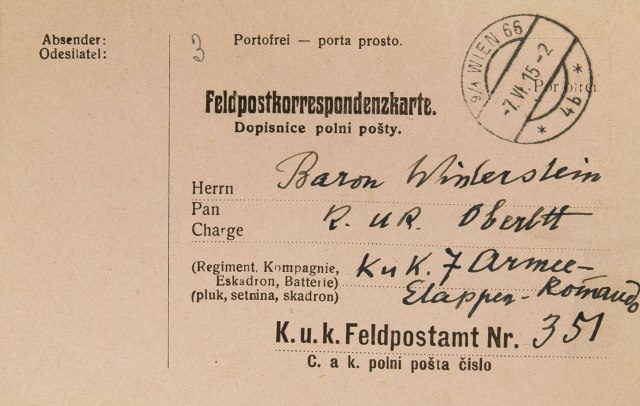 Absender:
Odesílatel:
3
Portofrei — porta prosto.
9/4 WIEN 66
-7.VI.15-2
* 4b *
Feldpostkorrespondenzkarte.
Dopisnice polní pošty.
Herrn Baron Winterstein
Pan
Charge K. u K. Oberltt
(Regiment. Kompagnie, K u K. 7 Armee-
Eskadron, Batterie)
(pluk, setnina, skadron) Etappen-Komando
K. u. k. Feldpostamt Nr. 351
C. a k. polní pošta číslo